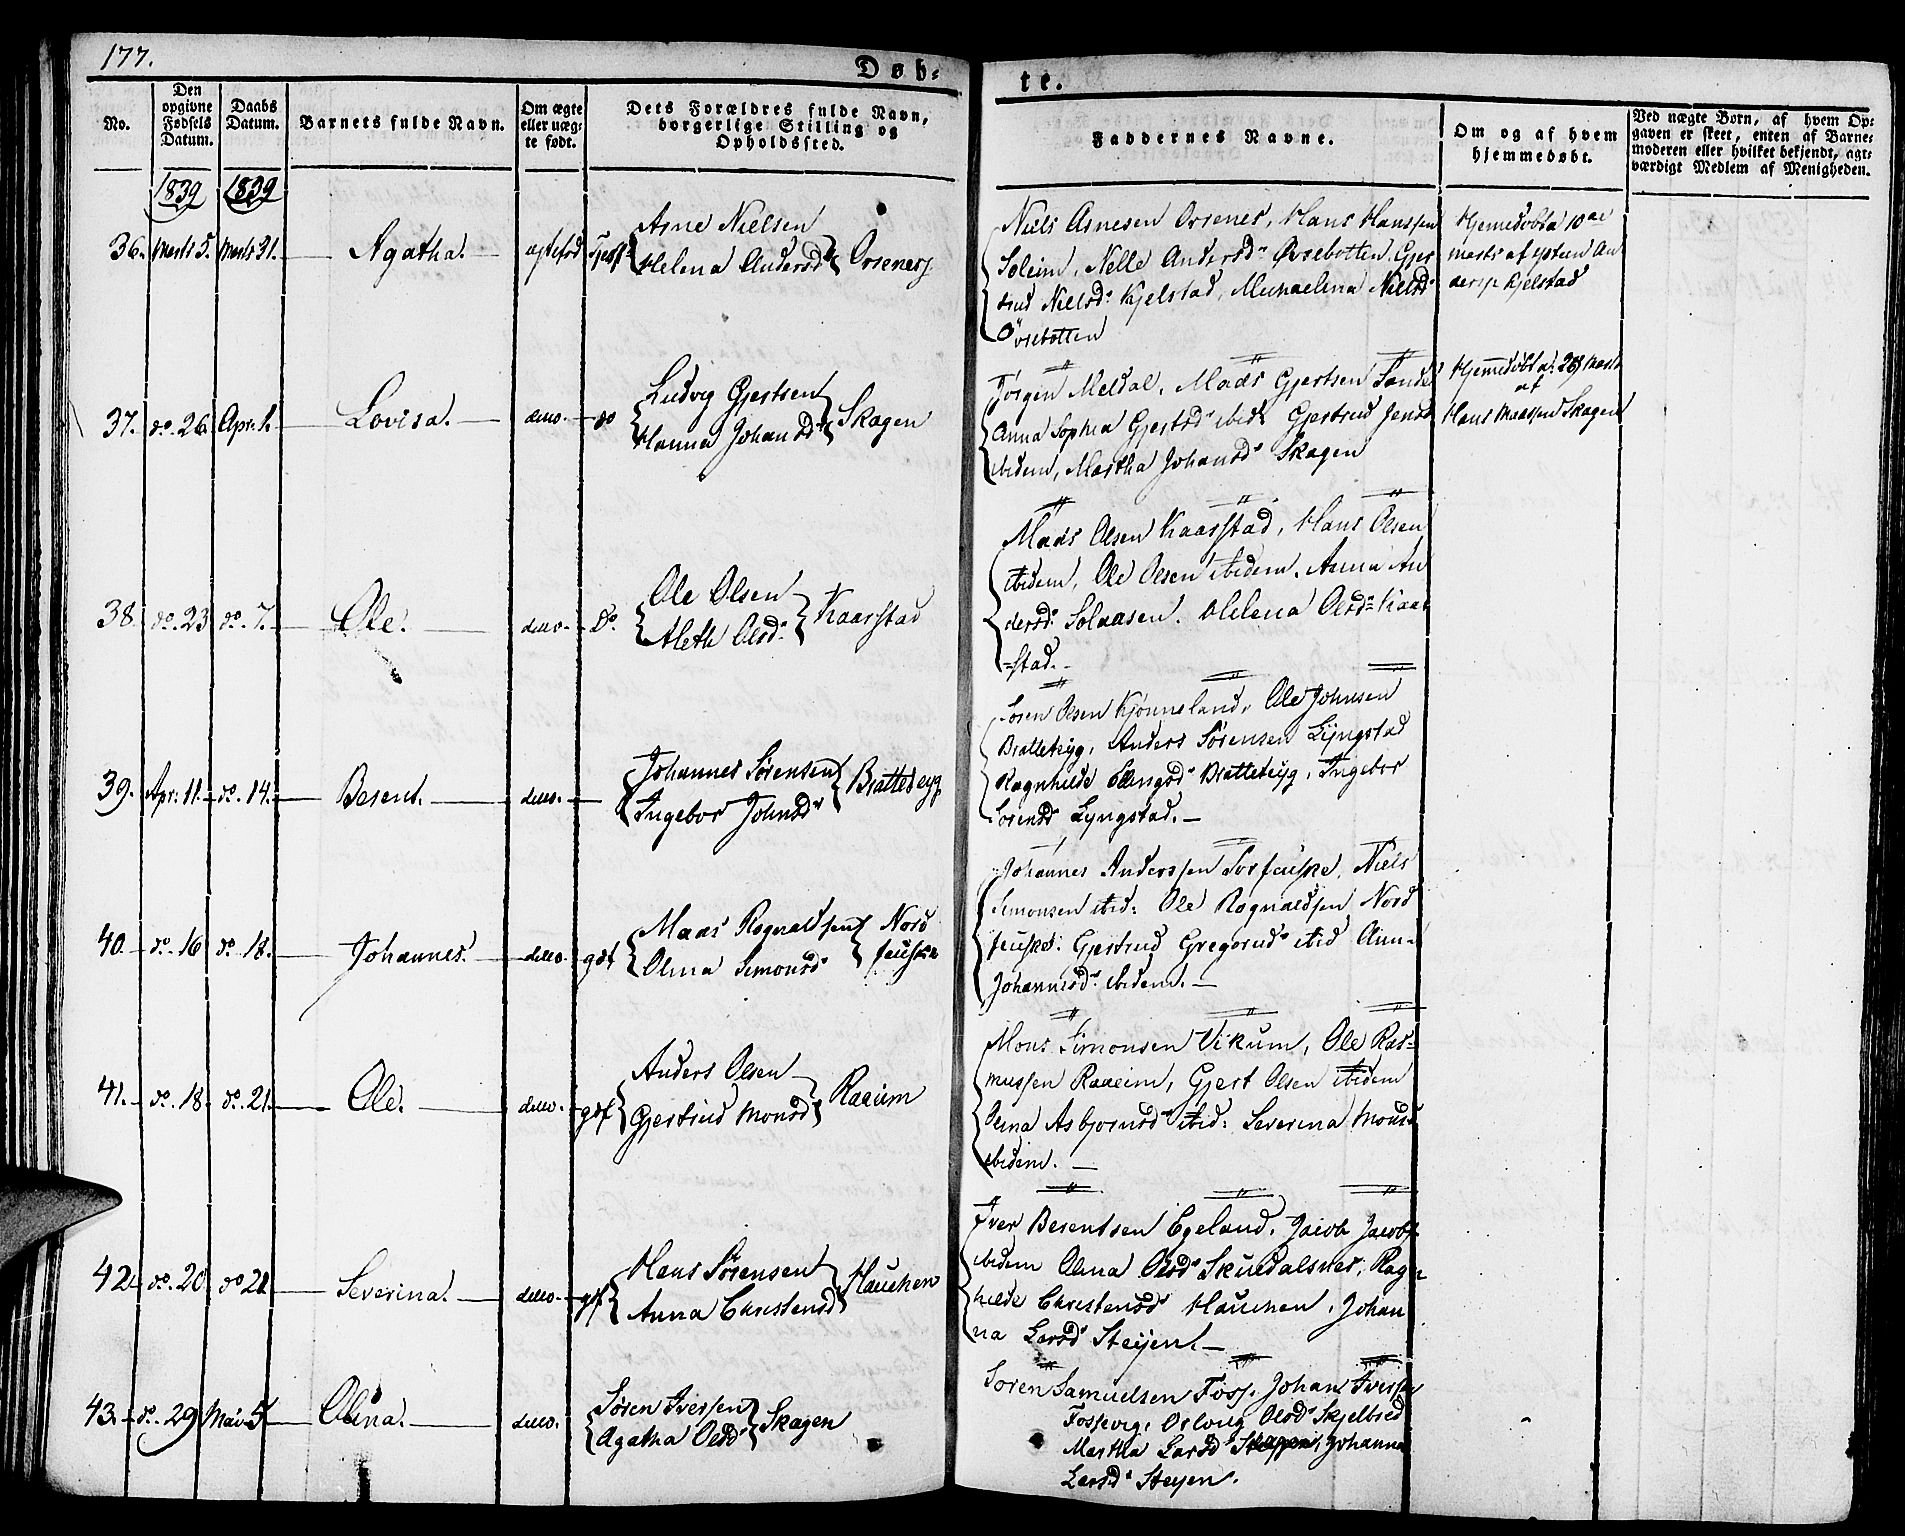 177.
Døb-
te.
No.
Den
opgivne
Fødsels
Datum.
Daabs
Datum.
Barnets fulde Navn.
Om ægte
eller uæg-
te født.
Dets Forældres fulde Navn,
borgerlige Stilling og
Opholdssted.
Faddernes Navne.
Om og af hvem
hjemmedøbt.
Ved uægte Børn, af hvem Op-
gaven er skeet, enten af Barne-
moderen eller hvilket bekjendt, agt-
værdigt Medlem af Menigheden.
1839 1839
36. Marts 5. Marts 31. Agatha.
Arne Nielsen
Helena Andersd
Niels Arnesen Orsenes, Hans Hanssen
Soleim, Nelle Andersd Øvrebotten, Gjer
trud Nielsd: Kjelstad, Michaelina Nielsd
Øvrebotten
Hjemedøbt d 10de
Marts af An
Kjelstad
37. do. 26. Apr: 1. Lovisa. ditto. do
Ludvig Gjertsen
Hanna Johansd
Skagen
Jørgen Meldal, Mads Gjertsen
Anna Sophia Gjertsd ibid: Gjertrud Jensd
ibidem, Martha Johansd Skagen
Hjemedøbt d. 28 Marts
af
Hans Maassen Skagen
38. do. 23. do. 7. Ole. ditto. Do.
Ole Olsen
Aleth Olsd.
Kaarstad
Mads Olsen Kaarstad, Hans Olsen
ibidem, Ole Olsen ibidem, Anna An
dersd: Solaasen. Helena Olsd: Kaar
=stad.
39. Apr: 11. do. 14. Besent. ditto.
Johannes Sørensen
Ingebor Johnsd
Bratteteyg
Soren Olsen Kjønnsland, Ole Johnsen
Bratteteyg, Anders Sørensen Lyngstad
Ragnhilde Bratteteyg, Ingebor
Sorensd Lyngstad.
40. do. 16 do. 18. Johannes. ditto. gdf
Maas Ragnaldsen
Olina Simonsd
Nord
feuske
Johannes Anderssen Sorfeuske, Niels
Simonsen ibid: Ole Ragnaldsen Nord
feuske: Gjertrud Gregoriusd ibid
Johannesd: ibidem.
41. do. 18. do. 21. Ole. ditto. gdf
Anders Olsen
Gjertrud Monsd
Raaeim
Mons Simonsen Vikum, Ole Ras-
mussen Raaeim, Gjert Olsen ibidem
Olina Asbjornsd ibid: Severina Monsd
ibidem.
42. do. 20. do 21 Severina. ditto. gdf
Hans Sørensen
Anna Christensd
Hauchen
Iver Besentsen Egeland, Jacob Jacobs
ibidem Olina Olsd Skuedalsnes, Ragn
hilde Christensd Hauchen, Johan
na Larsd Steijen.
43. do. 29 Mai 5. Olina. ditto.
Søren Iversen
Agatha Olsd
Skagen
Soren Samuelsen Foss. Johan Iversen
Fossevig, Oslvug Olsd Skjelbred
Martha Larsd Johanna
Larsd Steyen.